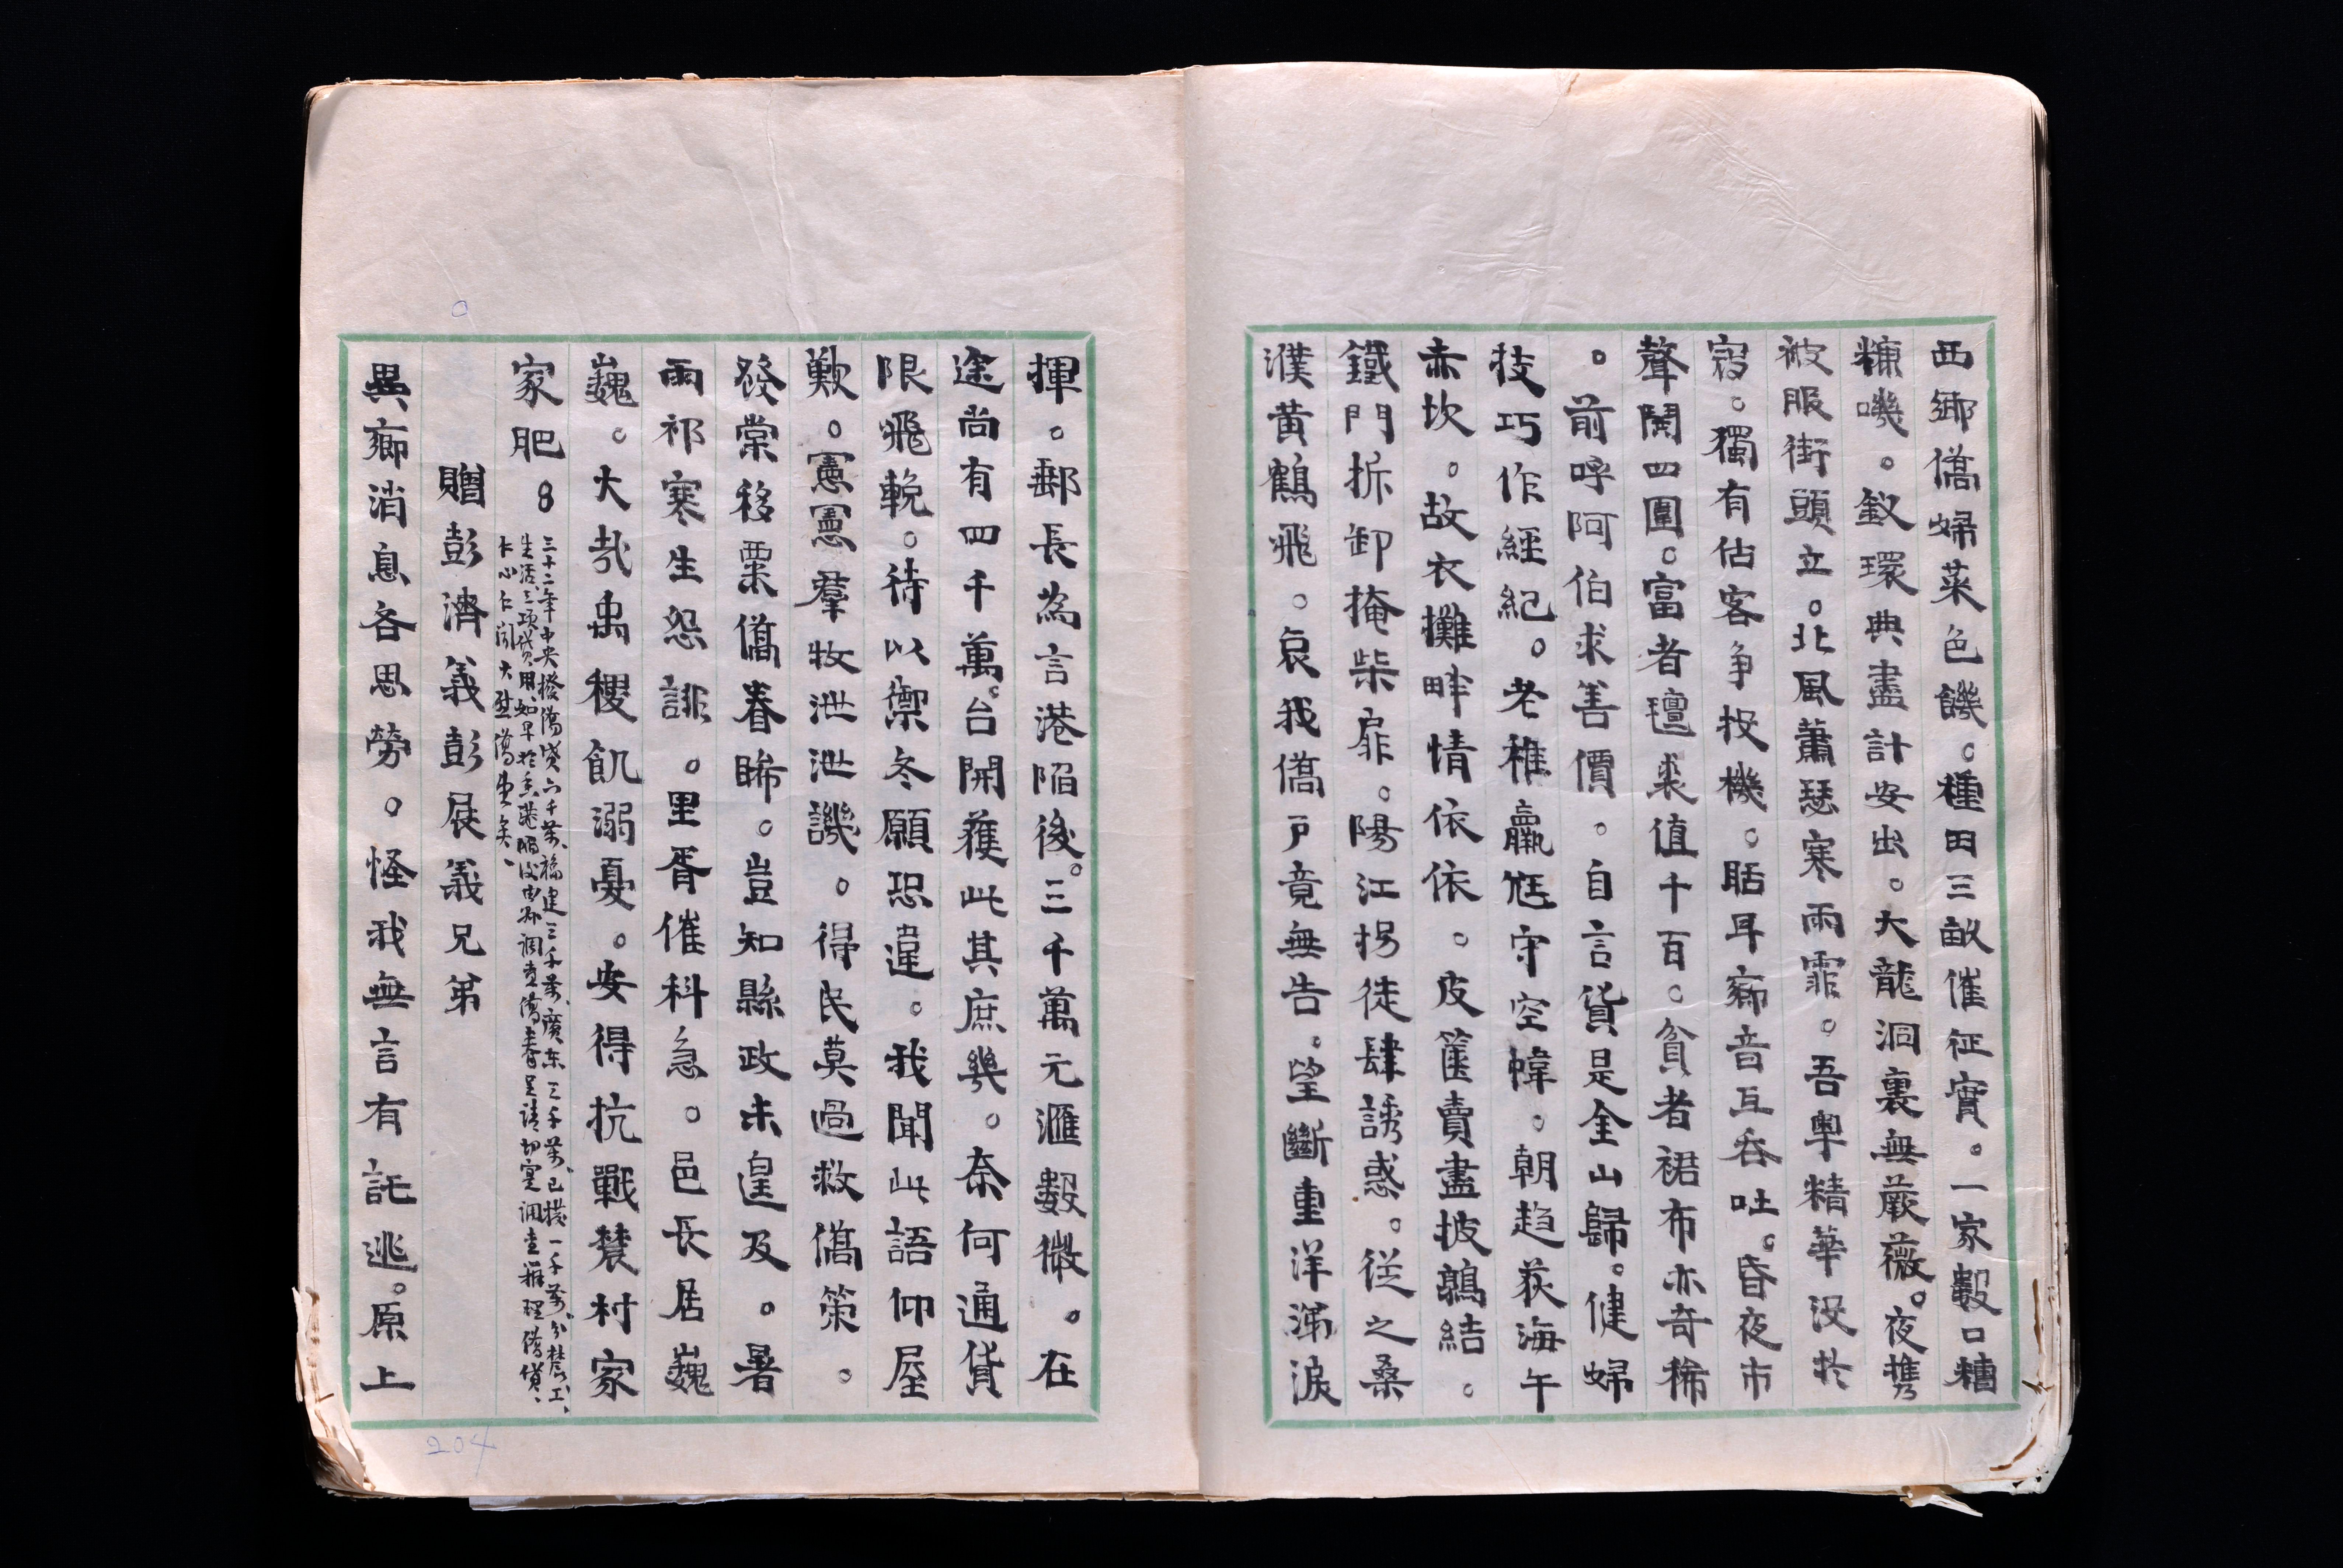 西鄉僑婦菜色饑。種田三畝催征實。一家穀口糟
糠嘰。釵環典盡計安出。大龍洞裏無蕨薇。夜携
被服街頭立。北風蕭瑟寒雨霏。吾粵精華沒於
寇。獨有估客争投機。聒耳鄉音互吞吐。昏夜市
聲鬧四圍。富者氊裘值千百。貧者裙布亦奇稀
。前呼阿伯求善價。自言貨是金山歸。健婦
技巧作經紀。老稚羸尫守空幃。朝趋荻海午
赤坎。故衣攤畔情依依。皮篋賣盡披鶉結。
鐵門拆卸掩柴扉。陽江拐徒肆誘惑。從之桑
濮黄鶴飛。哀我僑戸竟無告。望斷重洋涕淚
揮。郵長為言港陷後。三千萬元滙數微。在
途尚有四千萬。台開獲此其庶幾。奈何通貨
限飛輓。待以禦冬願恐違。我聞此語仰屋
歎。憲憲羣牧泄泄譏。得民莫過救僑策。
發棠移粟僑眷睎。豈知縣政未遑及。暑
雨祁寒生怨誹。里胥催科急。邑長居巍
巍。大哉禹稷飢溺憂。安得抗戰贊村家
家肥。
三十二年中央撥僑貸六千萬、福建三千萬、廣东三千萬、已撥一千萬、分農、工、
生活三項貸用、如早於香港陷後由 調查僑眷呈請切实調查辦理僑貸、
大 僑 矣、
贈彭濟義彭展義兄弟
異鄉消息各思勞。怪我無言有託逃。原上
204